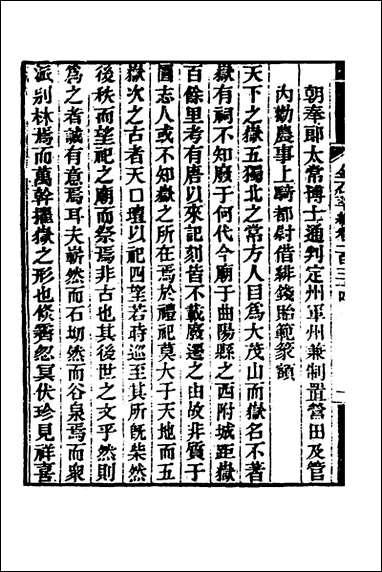 金石萃編卷一百三十四
朝奉郎太常博士通判定州軍州兼制置營田及管
內勸農事上騎都尉借緋錢貽範篆額
天下之嶽五獨北之常方人目為大茂山而嶽名不著
嶽有祠不知廢于何代今廟于曲陽縣之西附城距嶽
百餘里考有唐以來記刻皆不載廢遷之由故非質于
圖志人或不知嶽之所在焉於禮祀莫大于天地而五
嶽次之古者天口壇以祀四望若時巡至其所旣柴然
後秩而望祀之廟而祭焉非古也其後世之文乎然則
為之者誠有意焉耳夫嶄然而石㘭然而谷泉焉而衆
派別林焉而萬幹擢嶽之形也倏霱忽冥伏珍見祥喜